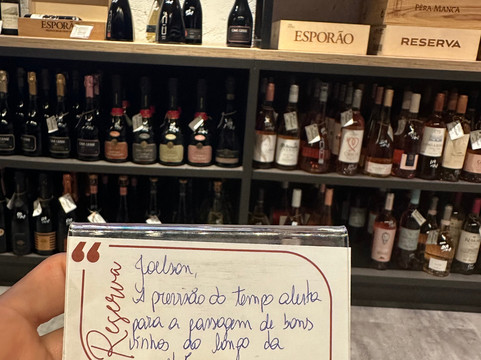 ESPORÃO
PÊRA MANCA
ESPORÃO
RESERVA
“
Reserva
Joelson,
A previsão do tempo alerta
para a passagem de bons
vinhos ao longo da